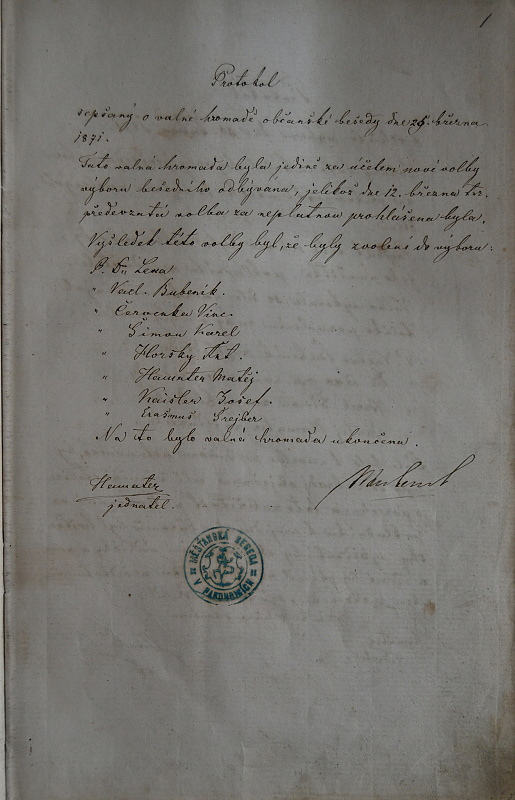 1
Protokol
sepsaný o valné hromadě občanské besedy dne 25. března
1871.
Tato valná hromada byla jedině za účelem nové volby
výboru besedního odbyvána, jelikož dne 12. března t.r.
předevzatá volba za neplatnou prohlášena byla.
Výsledek této volby byl, že byly zvoleni do výboru:
P. Dr. Lena
" Vacl. Bubeník.
" Červenka Vinc.
" Šimon Karel
" Horský Ant.
" Hamater Matěj
" Kaisler Josef.
" Erasmus Šrejber
Na to byla valná hromada ukončena.
Hamater
jednatel.
MĚŠŤANSKÁ BESEDA
V